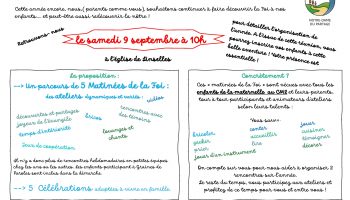 Cette année encore, nous, parents comme vous, souhaitons continuer à faire découvrir la Foi à nos
enfants... et peut-être aussi redécouvrir la nôtre !
NOTRE-DAME
DU PARTAGE
Retrouvons-nous
le samedi 9 septembre à 10h
à l'église de
pour détailler l'organisation de
l'année. À l'issue de cette réunion, nous
pourrez inscrire vos enfants à cette
belle aventure ! Votre présence est
essentielle !
La proposition :
-> Un parcours de 5 Matinées de la Foi :
des ateliers dynamiques et variés :
vidéos
découvertes et partages
joyeux
temps d'intériorité
jeux
bricolages
temps forts
louanges et
chants
Il n'y a donc plus de rencontres hebdomadaires en petites équipes
chez les uns ou les autres. Les enfants participant à Graines de
Paroles sont inclus dans la démarche.
-> 5 Célébrations adaptées à vivre en famille
Concrètement ?
Ces « matinées de la Foi » sont vécues avec tous les
enfants de la maternelle au CM2 et leurs parents,
tous à tour participants et animateurs d'ateliers
selon leurs talents :
Vous aimez :
bricoler
jardiner
lire
jouer d'un instrument
conter
accueillir
chanter
jouer
cuisiner
témoigner
décorer
On compte sur vous pour nous aider à organiser 2
rencontres sur l'année.
Le reste du temps, nous participons aux ateliers et
profitez de ce temps pour vous et notre enfant !